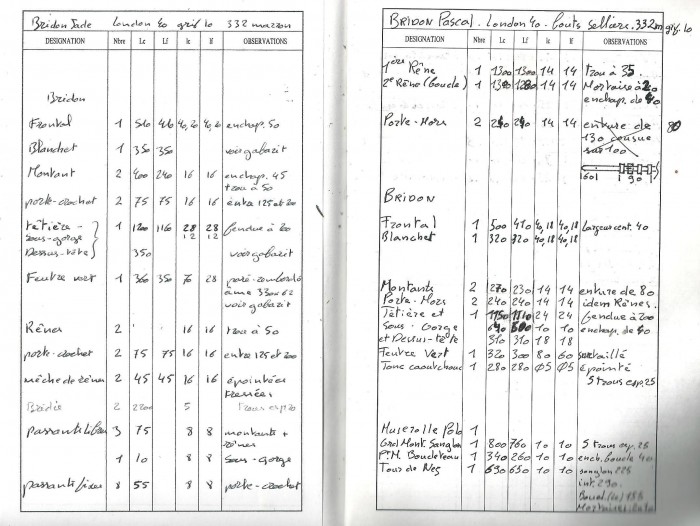 Bridon Jade London 40 grif 10 332 marron
DESIGNATION Nbre Lc Lf lc lf OBSERVATIONS
Bridon
Frontal 1 510 416 40,20 40,20 enchap. 50
Blanchet 1 350 350 voir gabarit
Montant 2 400 240 16 16 enchap. 45
trou à 50
porte-crochet 2 75 75 16 16 entre 125 et 200
têtière - 1 1200 116 28 28 fendue à 200
sous-gorge 12 12
Dessus-tête 350 voir gabarit
Feutre vert 1 360 350 70 28
âme 330x62
voir gabarit
Rênes 2 16 16 trou à 50
porte-crochet 2 75 75 16 16 entre 125 et 200
mèche de rênes 2 45 45 16 16 épointées
2 2200 5
passants libres 3 75 8 8 montants +
rênes
1 10 8 8 sous-gorge
passants fixes 8 55 8 8 porte-crochet
BRIDON PASCAL. London 40. Couts Sellière. 332 m grif. 10
DESIGNATION Nbre Lc Lf lc lf OBSERVATIONS
1ère Rêne 1 1300 1300 14 14 trou à 35.
2e Rêne (boucle) 1 14 14 Mortaise à 20
enchap. de 40
Porte-Mors 2 240 240 14 14 enture de 80
130 cousue
sur 100
1 90 1
BRIDON
Frontal 1 500 410 40,18 40,18 Largeur cent. 40
Blanchet 1 320 320 40,18 40,18
Montants 2 270 230 14 14 enture de 80
Porte-Mors 2 240 240 14 14 idem Rênes.
Têtière et 1 1150 1110 24 24 fendue à 200
Sous-Gorge 640 600 10 10 enchap. de 40
et Dessus-tête 310 310 18 18
Feutre Vert 1 320 300 80 60
Jonc caoutchouc 1 280 280 Ø5 Ø5 épointé
5 trous esp. 25
Muserolle Polo 1
Grd Mont. Sanglon 1 800 760 10 10 5 trous esp. 25
P.M. Boucleteau 1 340 260 10 10 ench. boucle 40
Tour de Nez 1 650 650 10 10 sanglon 225
int. 290.